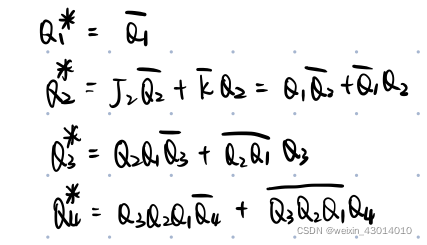 Q₁* = Q̅₁
Q₂* = J₂Q̅₂ + k̅ Q₂ = Q₁Q̅₂ + Q̅₁Q₂
Q₃* = Q₂Q₁Q̅₃ + \overline{Q₂Q₁} Q₃
Q₄* = Q₃Q₂Q₁Q̅₄ + \overline{Q₃Q₂Q₁}Q₄
CSDN @weixin_43014010